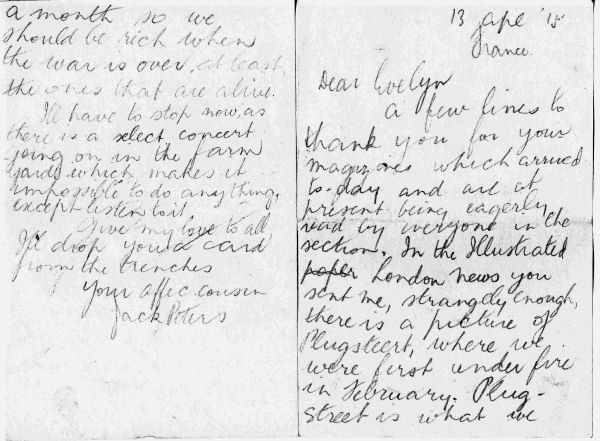 a month so we
should be rich when
the war is over, at least,
the ones that are alive.
I'll have to stop now, as
there is a select concert
going on in the farm
yard, which makes it
impossible to do anything,
except listen to it.
Give my love to all,
I'll drop you a card
from the trenches
Your affec. cousin
Jack Peters
13 Apl '15
France.
Dear Evelyn
A few lines to
thank you for your
magazines which arrived
to-day and are at
present being eagerly
read by everyone in the
section. In the Illustrated
London news you
sent me, strangely enough,
there is a picture of
Plugsteert, where we
were first under fire
in February. Plug-
street is what we